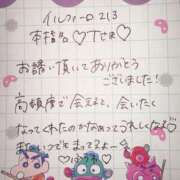 イルフィーロ 213
本指名♡Tさま♡
お誘い頂いてありがとう
ございました!
高頻度で会えると、会いたく
なってくれたのかなぁってうれしくなる♡
またいつでもまってるよー
♡はづき♡